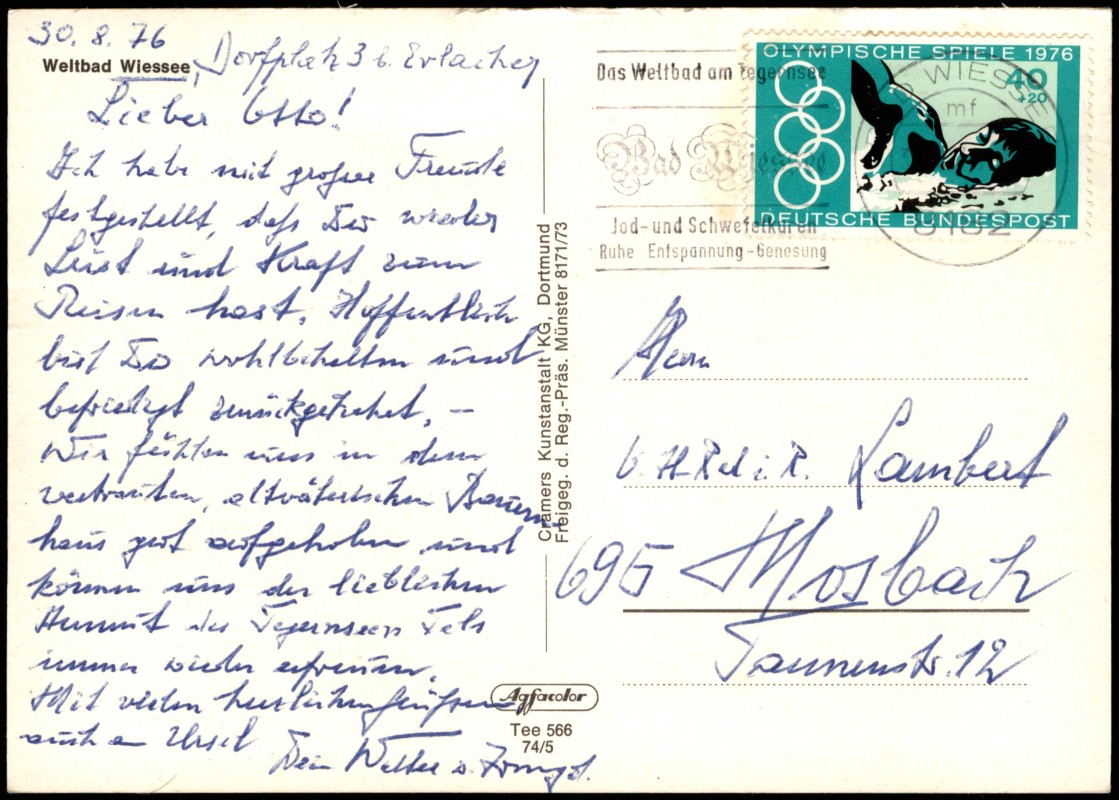 30. 8. 76
Weltbad Wiessee, Dorfplatz 3 b. Erlacher
Lieber Otto!
Ich habe mit großer Freude
festgestellt, daß Du wieder
Lust und Kraft zum
Reisen hast. Hoffentlich
bist Du wohlbehalten und
befriedigt zurückgekehrt. –
Wir fühlen uns in dem
vertrauten, altväterischen Bauern-
haus gut aufgehoben und
können uns der lieblichen
Anmut des Tegernseer Tals
immer wieder erfreuen.
Mit vielen herzlichen Grüßen
auch an Ursel
Dein Walter u.
Cramers Kunstanstalt KG, Dortmund
Freigeg. d. Reg.-Präs. Münster 8171/73
Agfacolor
Tee 566
74/5
Das Weltbad am Tegernsee
Bad Wiessee
Jod- und Schwefelkuren
Ruhe Entspannung - Genesung
OLYMPISCHE SPIELE 1976
40
+20
DEUTSCHE BUNDESPOST
BAD WIESSEE
mf
8182
Herrn
i. R. Lambert
695 Mosbach
Tannenstr. 12